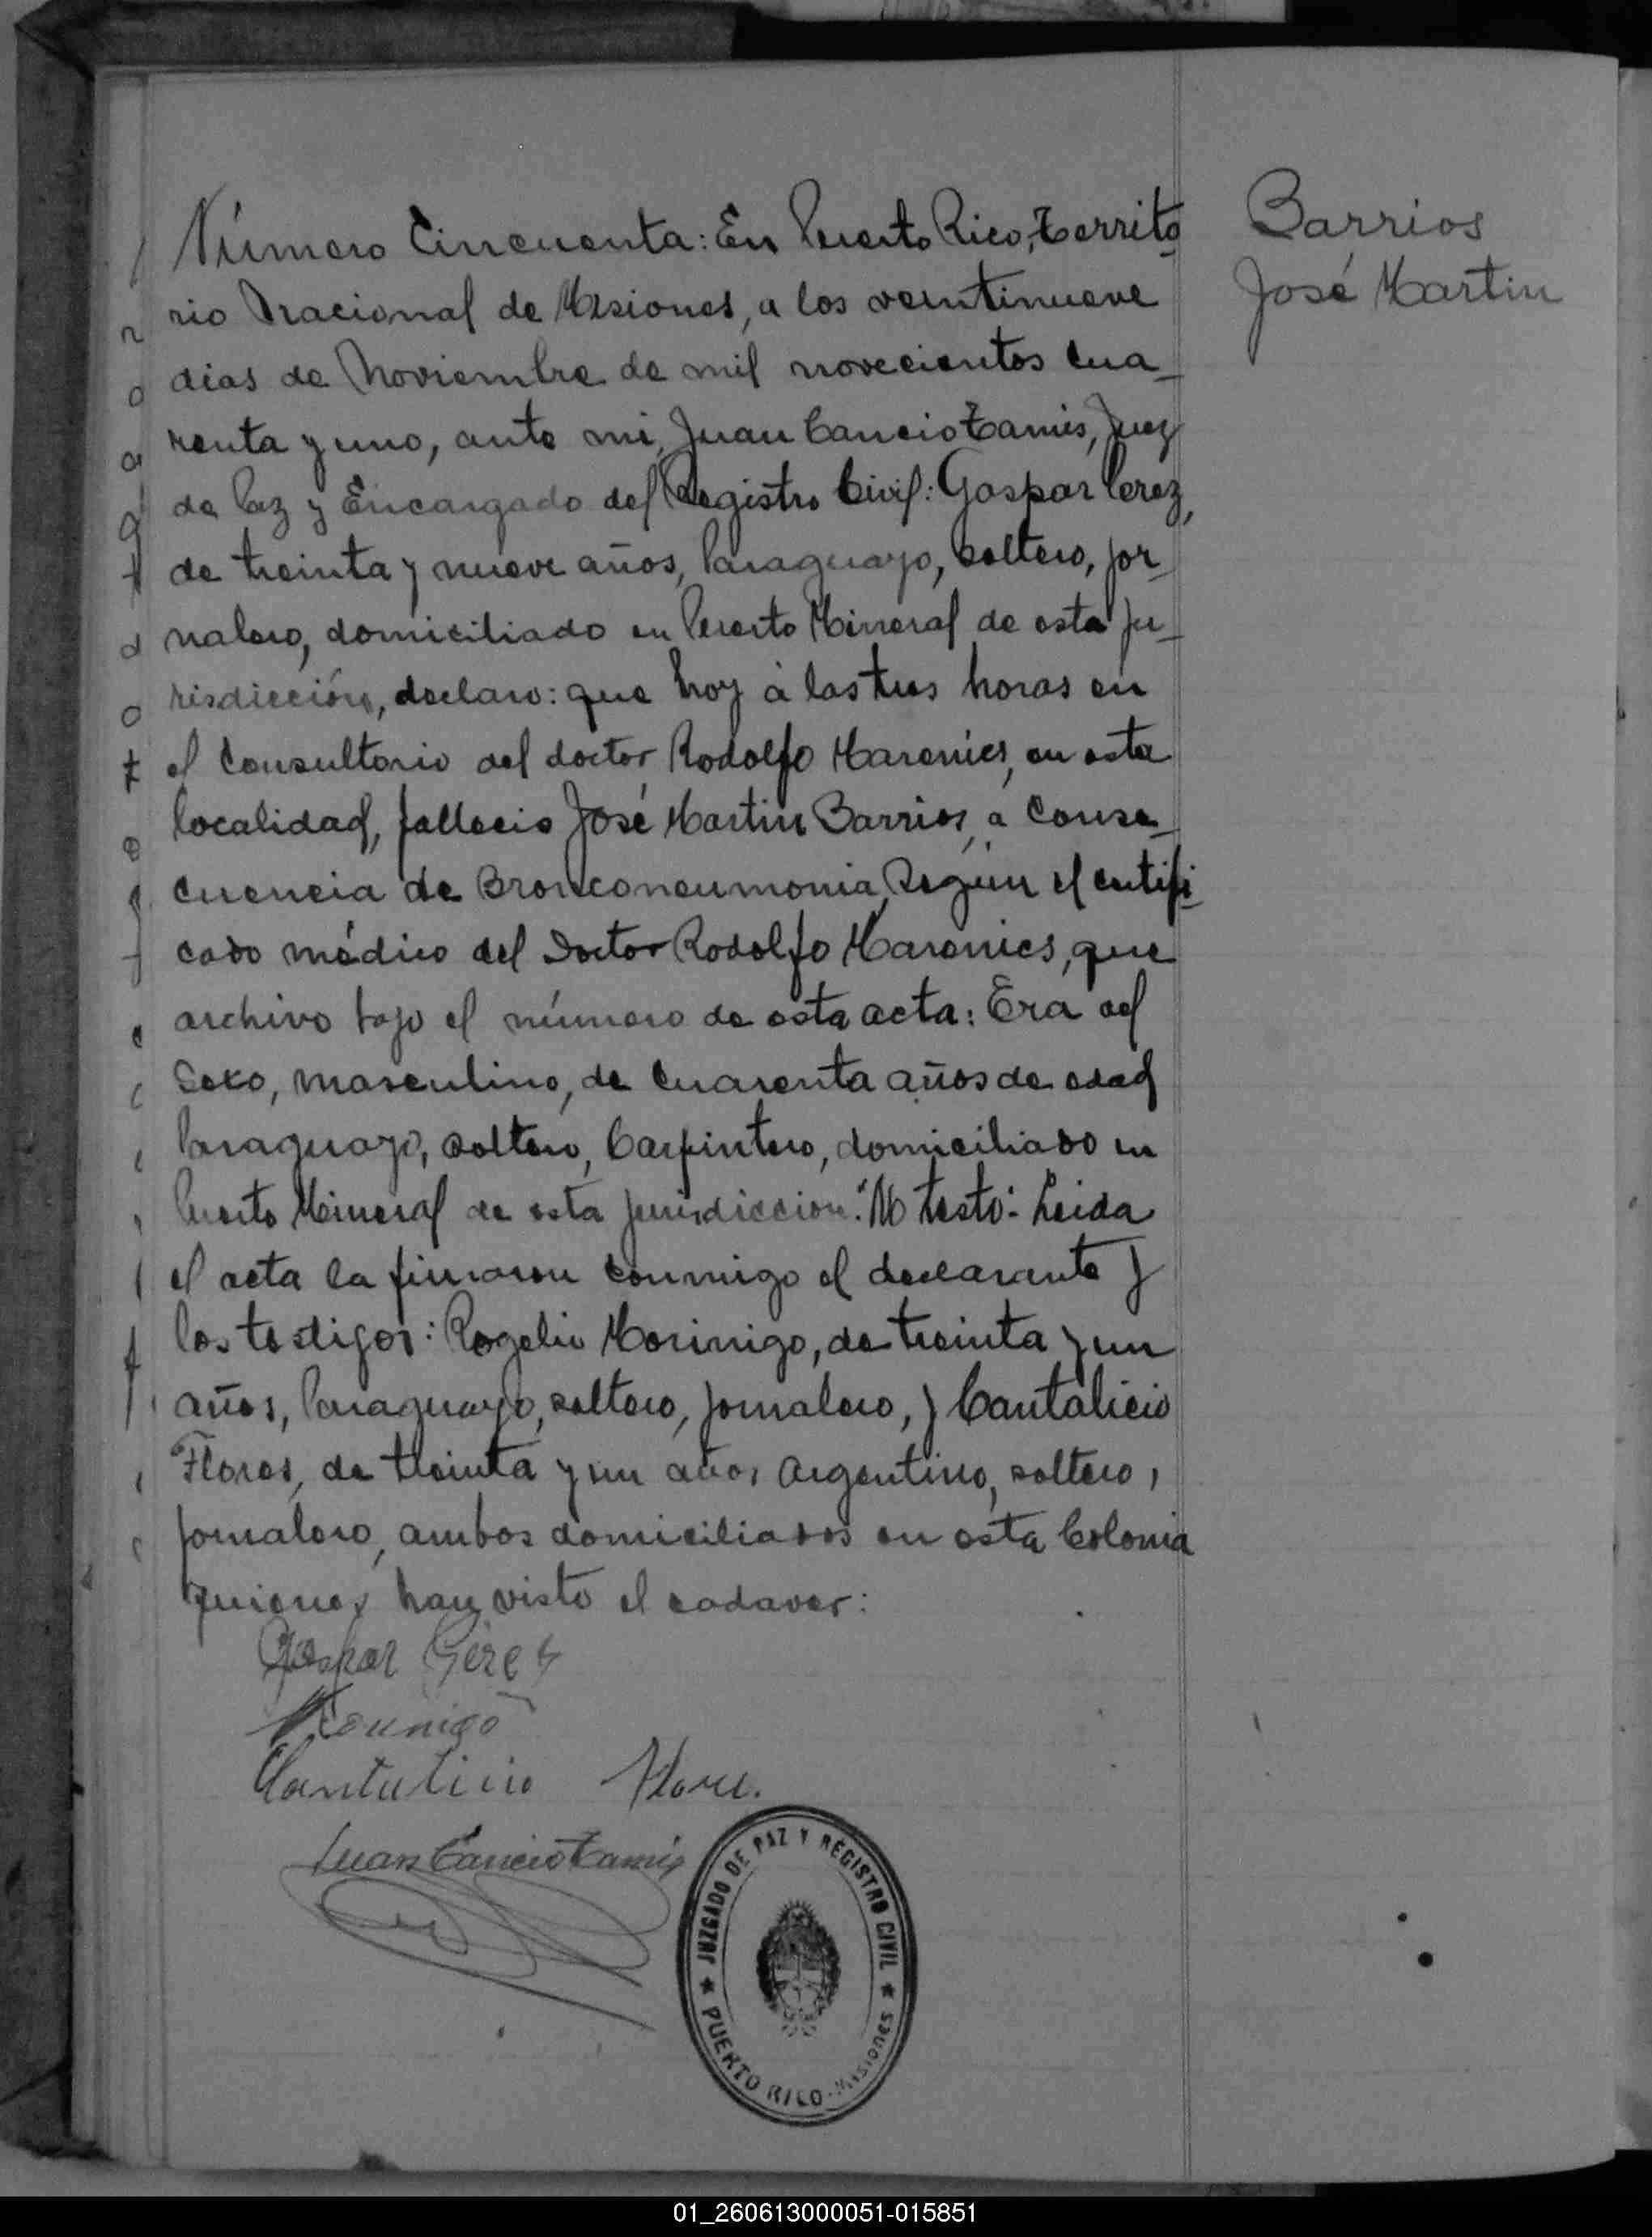 Barrios
José Martin
Número Cincuenta: En Puerto Rico, territo-
rio Nacional de Misiones, a los veintinueve
dias de Noviembre de mil novecientos cua-
renta y uno, ante mi, Juan Cancio Tamis, Juez
de Paz y Encargado del Registro Civil: Gaspar Perez,
de treinta y nueve años, Paraguayo, soltero, jor-
nalero, domiciliado en Puerto Mineral de esta ju-
risdicción, declaro: que hoy à las tres horas en
el Consultorio del doctor Rodolfo Marenics, en esta
localidad, fallecio José Martin Barrios, a Conse-
cuencia de Bronconeumonia, Según el certifi-
cado médico del Doctor Rodolfo Marenics, que
archivo bajo el número de esta acta: Era del
Sexo, masculino, de Cuarenta años de edad
Paraguayo, soltero, Carpintero, domiciliado en
Puerto Mineral de esta jurisdiccion: No testó: Leida
el acta la firmaron conmigo el declarante y
los testigos: Rogelio Morinigo, de treinta y un
años, Paraguayo, soltero, jornalero, y Cantalicio
Flores, de treinta y un años Argentino, soltero,
jornalero, ambos domiciliados en esta Colonia
quienes han visto el cadaver:
Gaspar Gerez
Cantalicio Flore.
Juan Cancio Tamis
JUZGADO DE PAZ Y REGISTRO CIVIL
PUERTO RICO-MISIONES
01_260613000051-015851